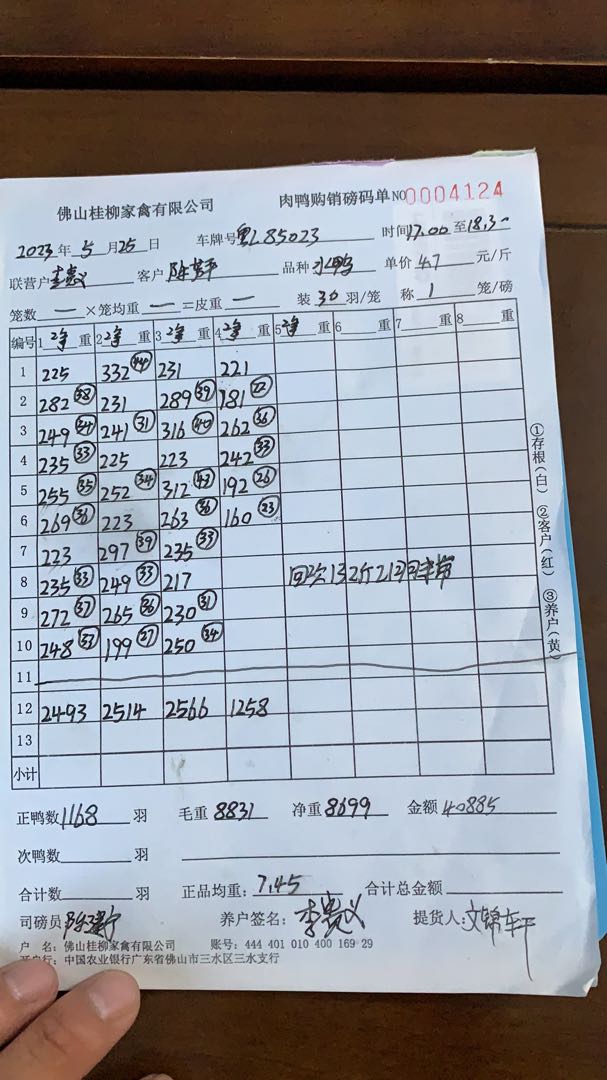 佛山桂柳家禽有限公司 肉鸭购销磅码单 NO 0004124
2023年5月25日 车牌号 粤L85023 时间17.00至18.30
联营户 客户 品种 水鸭 单价 4.7 元/斤
笼数 一 ×笼均重 一 =皮重 一 装 30 羽/笼 称 1 笼/磅
编号 1 净 重 2 净 重 3 净 重 4 净 重 5 净 重 6 重 7 重 8 重
1 225 332 (44) 231 221
2 282 (38) 231 289 (39) 181 (22)
3 249 (34) 241 (31) 316 (40) 262 (36)
4 235 (33) 225 223 242 (33)
5 255 (35) 252 (34) 312 (43) 192 (26)
6 269 (36) 223 263 (36) 160 (23)
7 223 297 (39) 235 (33)
8 235 (33) 249 (33) 217 132斤
9 272 (37) 265 (36) 230 (31)
10 248 (33) 199 (27) 250 (34)
11
12 2493 2514 2566 1258
13
小计
①存根(白) ②客户(红) ③养户(黄)
正鸭数 1168 羽 毛重 8831 净重 8699 金额 40885
次鸭数 羽
合计数 羽 正品均重: 7.45 合计总金额
司磅员 养户签名: 李贵义 提货人:
户 名: 佛山桂柳家禽有限公司 账号: 444 401 010 400 169 29
开户行: 中国农业银行广东省佛山市三水区三水支行